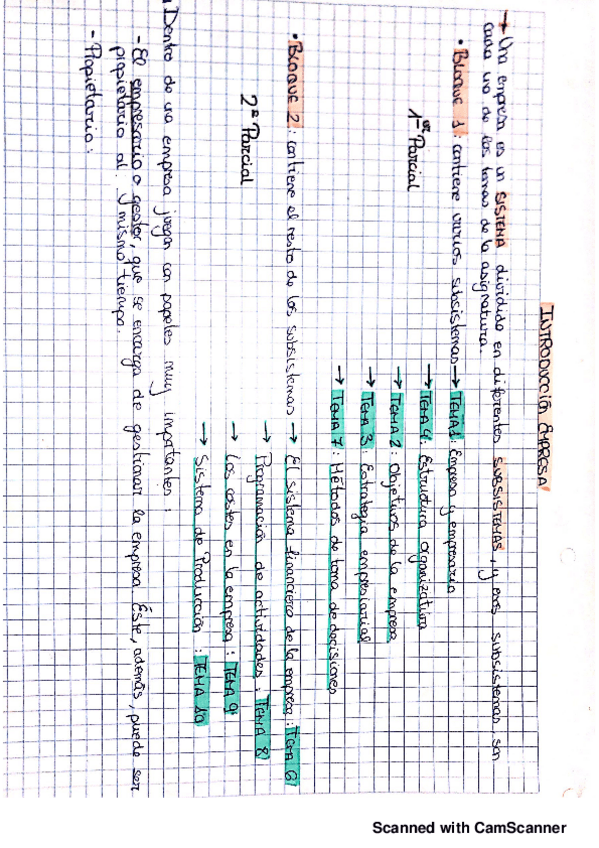 INTRODUCCIÓN EMPRESA
→ Una empresa es un SISTEMA dividido en diferentes SUBSISTEMAS, y esos subsistemas son
cada uno de los temas de la asignatura.
• BLOQUE 1: contiene varios subsistemas → TEMA 1: Empresa y empresario
→ TEMA 4: Estructura organizativa
1er Parcial
→ TEMA 2: Objetivos de la empresa
→ TEMA 3: Estrategia empresarial
→ TEMA 7: Métodos de toma de decisiones
• BLOQUE 2: contiene el resto de los subsistemas → El sistema financiero de la empresa: TEMA 6
→ Programación de actividades: TEMA 8
2º Parcial
→ Los costes en la empresa: TEMA 9
→ Sistema de Producción: TEMA 10
Dentro de una empresa juegan con papeles muy importantes:
- El empresario o gestor, que se encarga de gestionar la empresa. Éste, además, puede ser
propietario al mismo tiempo.
- Propietario:
Scanned with CamScanner